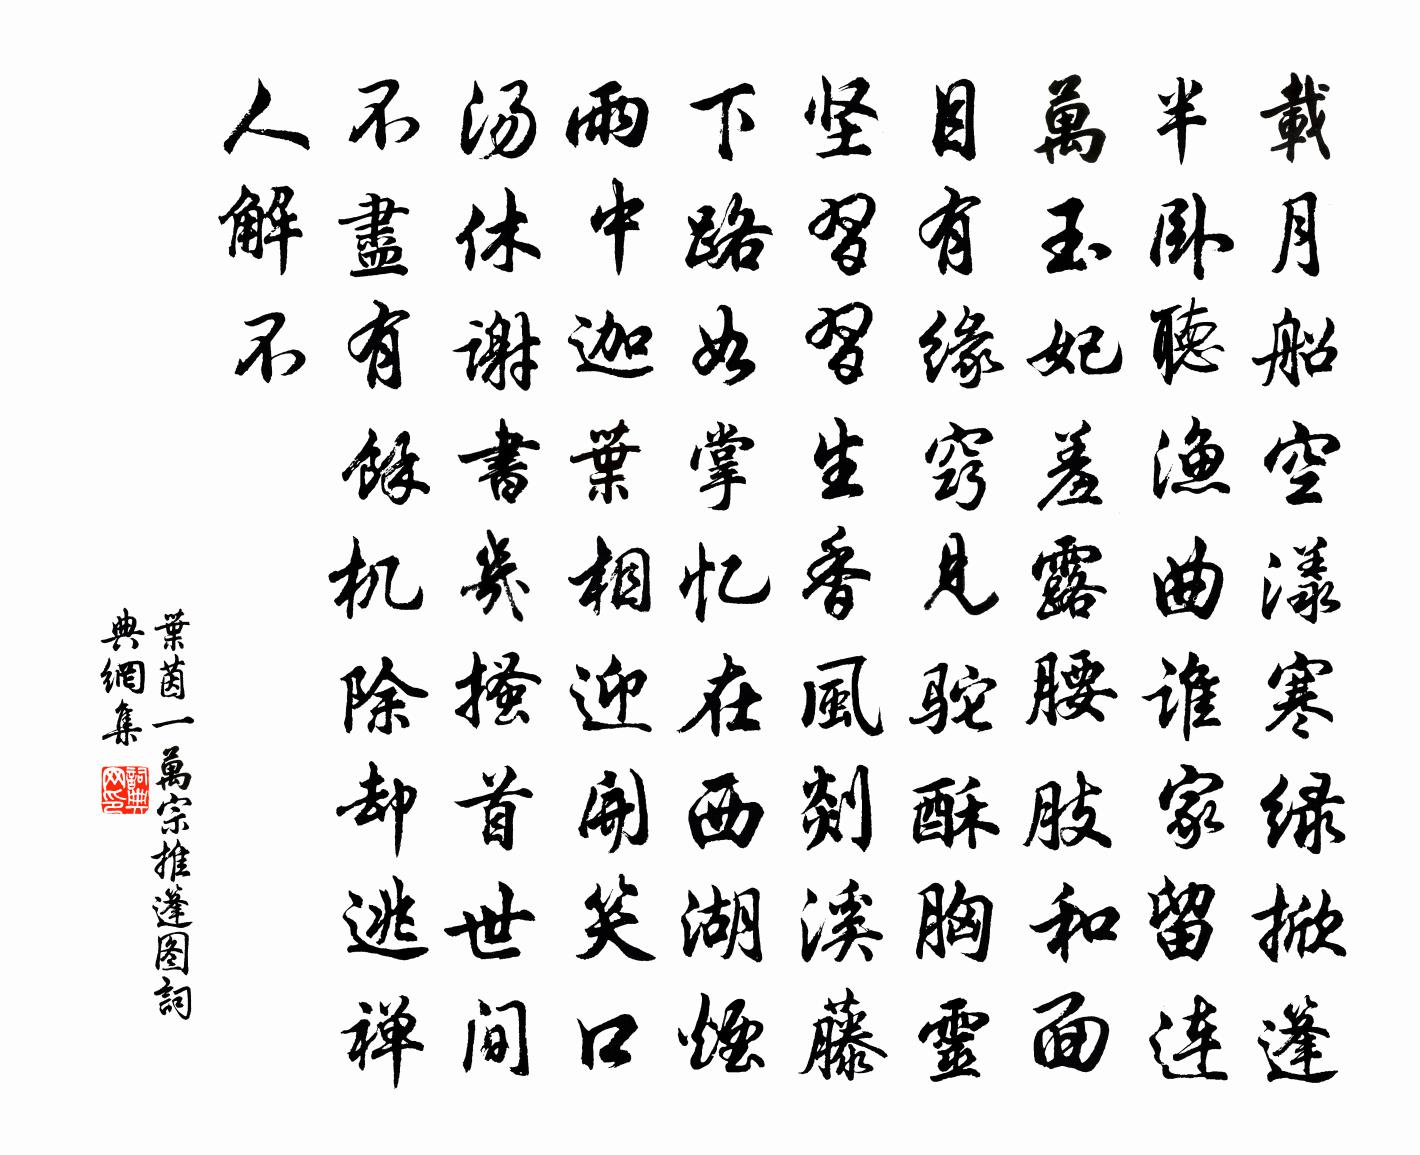 載月船空漾寒绿掀篷
半卧聽漁曲谁家留连
萬玉妃羞露腰肢和面
目有缘窍见驼酥胸靈
坚習習生香風剡溪藤
下路如掌忆在西湖煙
雨中迦葉相迎開笑口
汤休谢書幾搔首世间
不盡有餘机除却逃禅
人解不
葉茵一萬宗推蓬图詞
典網集
詞典
网印